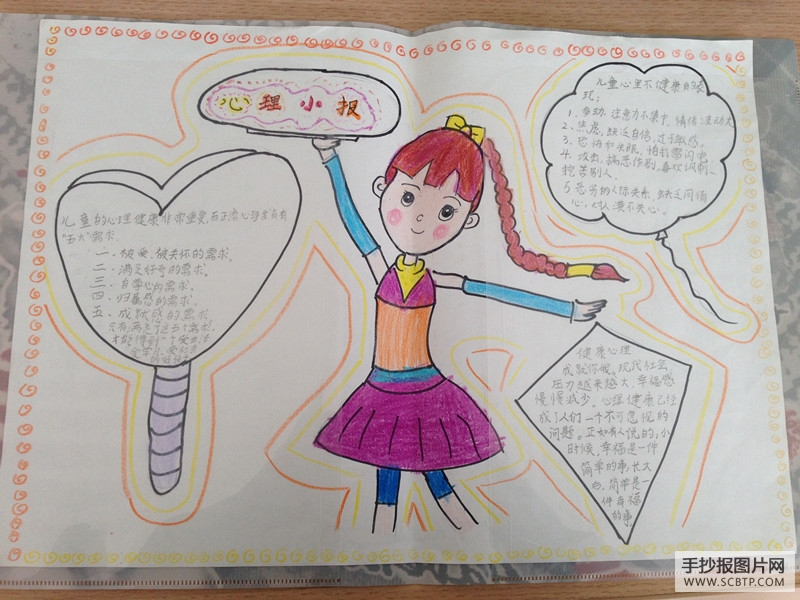 心理小报
儿童的心理健康非常重要,而正常心理发育有
"五大"需求.
一、被爱、被关怀的需求.
二、满足好奇的需求.
三、自尊心的需求.
四、归属感的需求.
五、成就感的需求.
只有满足了这五个需求.
才能得到一个
儿童心里不健康的表
现:
1.多动,注意力不集中,情绪波动大
2.焦虑,缺乏自信,过于敏感。
3.恐怖和失眠,怕打雷闪电
4.攻击,搞恶作剧,喜欢讽刺、
挖苦别人.
5.恶劣的人际关系,缺乏同情
心,对人漠不关心。
健康心理
成就你我。现代社会,
压力越来越大,幸福感
慢慢减少。心理健康已经
成了人们一个不可忽视的
问题。正如有人说的:小
时候,幸福是一件
简单的事,长大
后,简单是一
件幸福
的事
手抄报图片网
WWW.SCBTP.COM